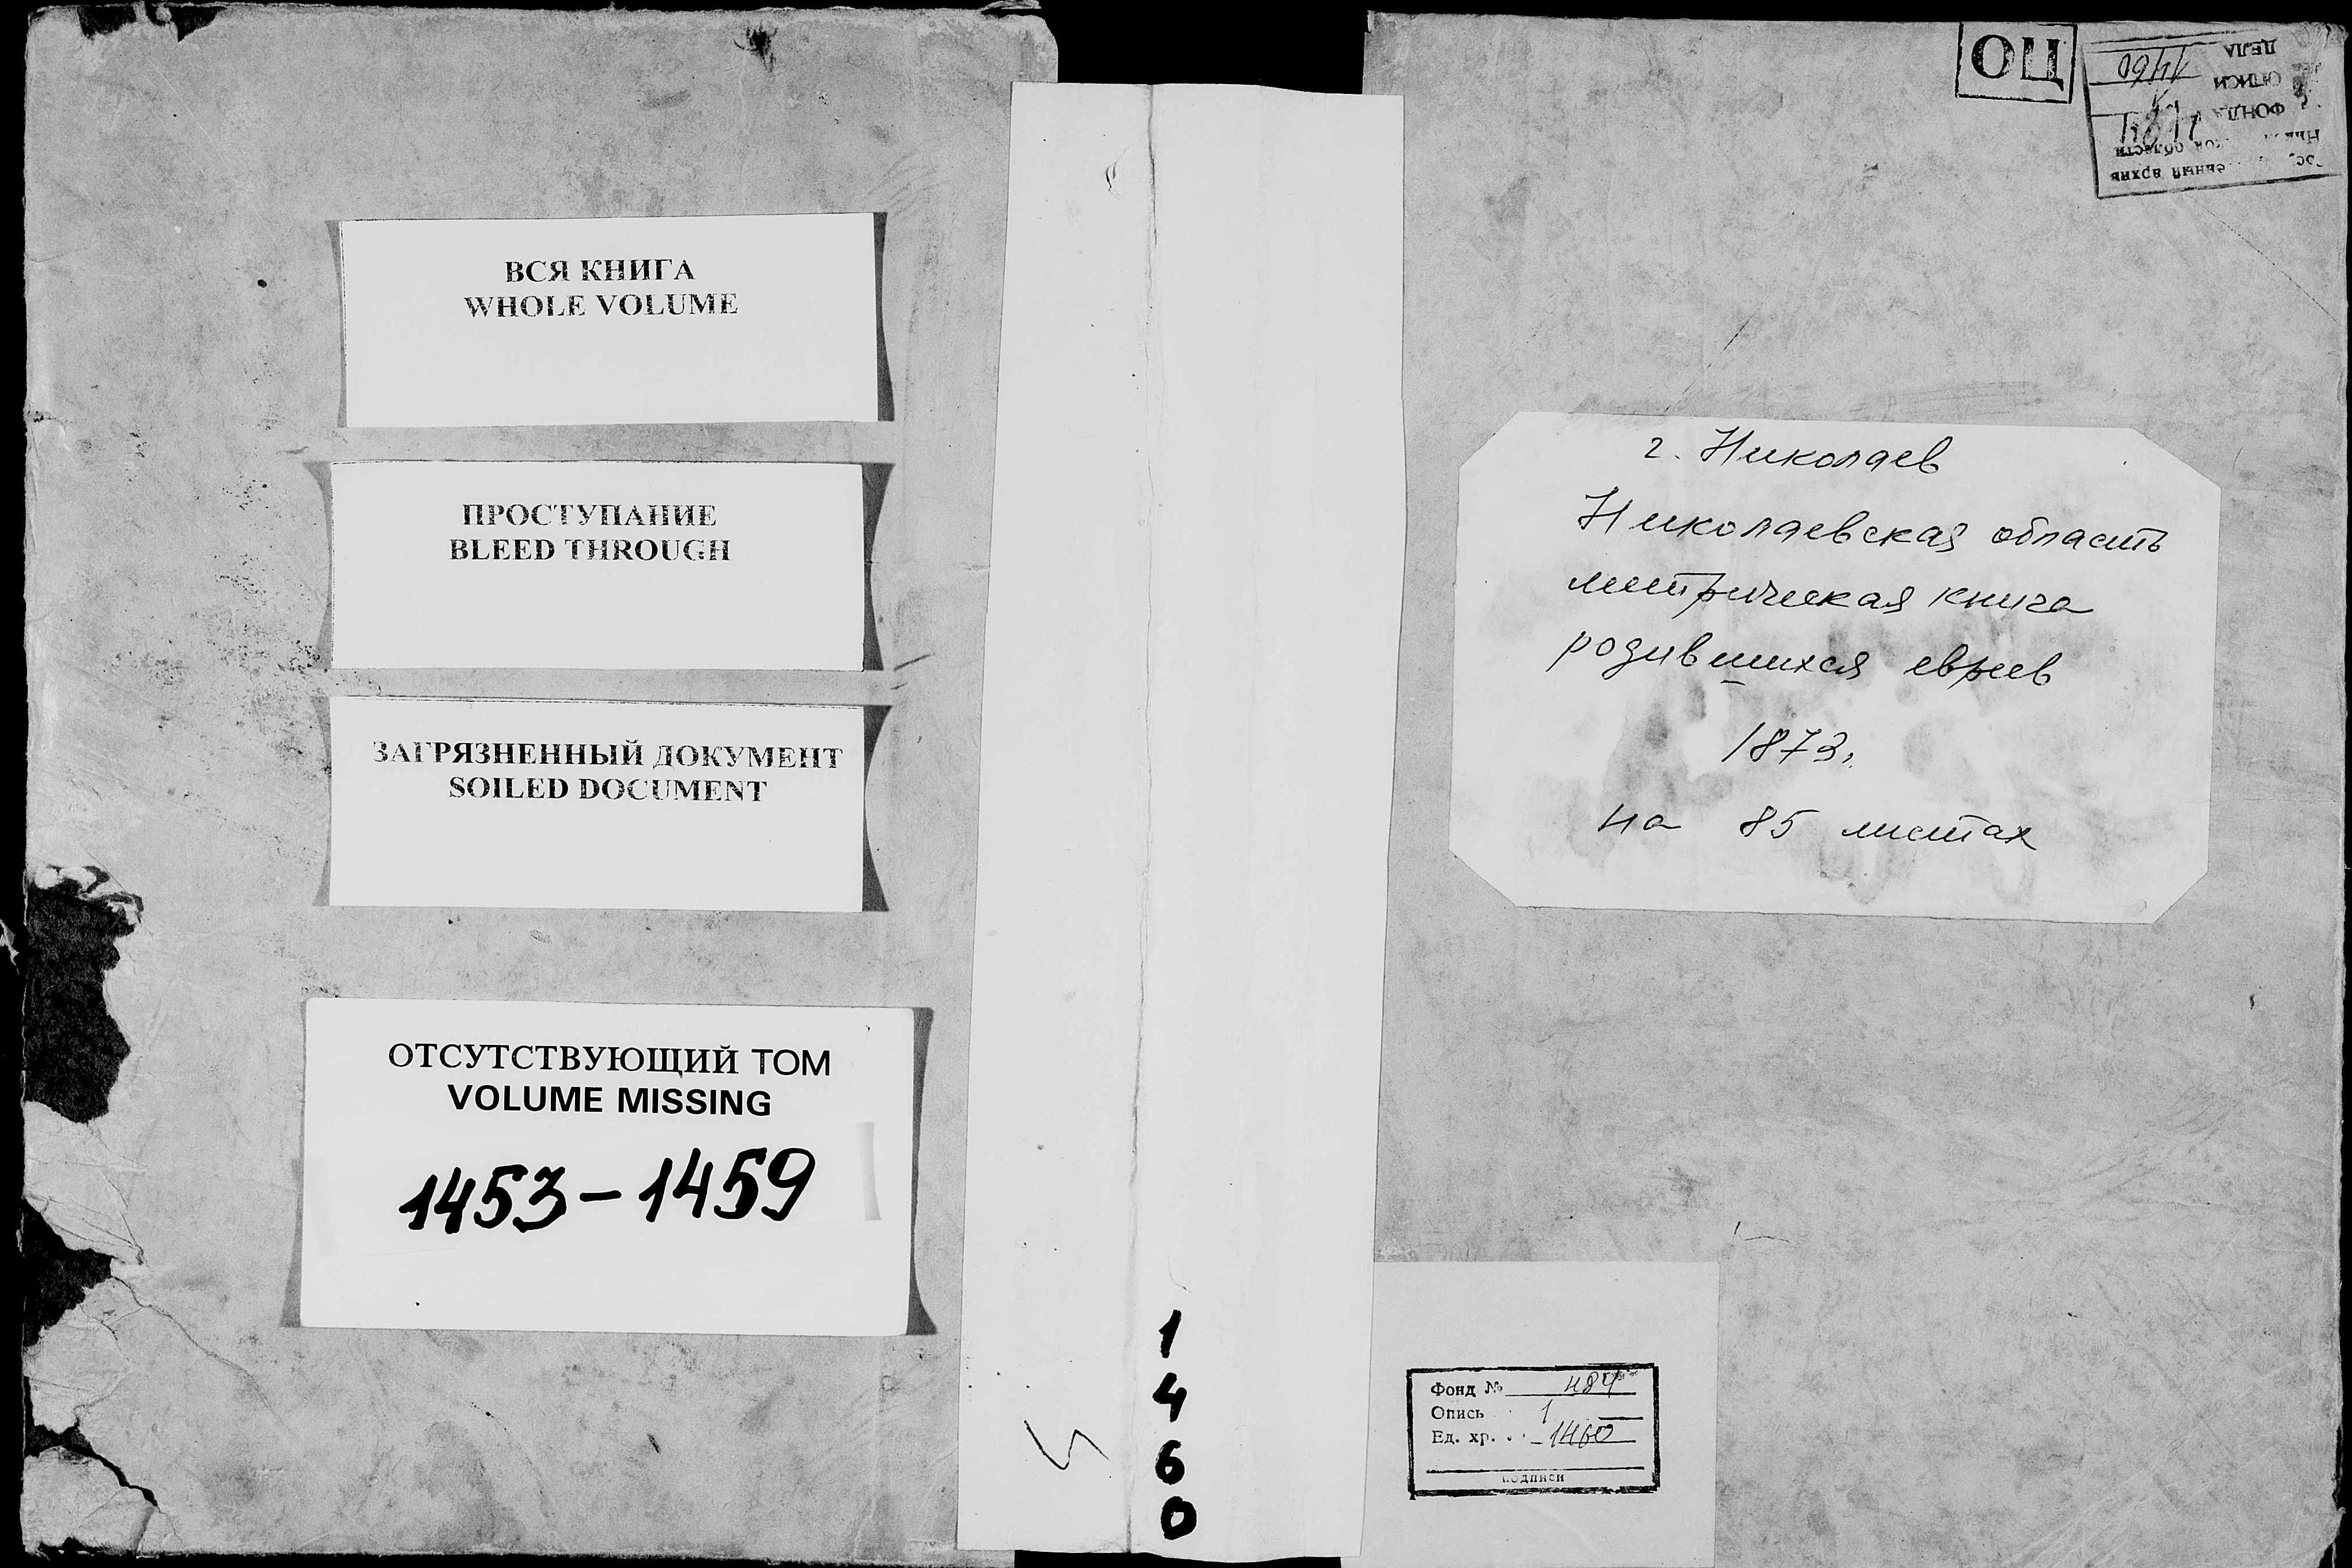 ВСЯ КНИГА
WHOLE VOLUME
ПРОСТУПАНИЕ
BLEED THROUGH
ЗАГРЯЗНЕННЫЙ ДОКУМЕНТ
SOILED DOCUMENT
ОТСУТСТВУЮЩИЙ ТОМ
VOLUME MISSING
1453-1459
1
4
6
0
ОЦ
архив
области
ФОНДА
ОПИСИ
ДЕЛА 1460
г. Николаев
Николаевская область
метрическая книга
родившихся евреев
1873,
на 85 листах
Фонд № 484
Опись 1
Ед. хр. 1460
подписи